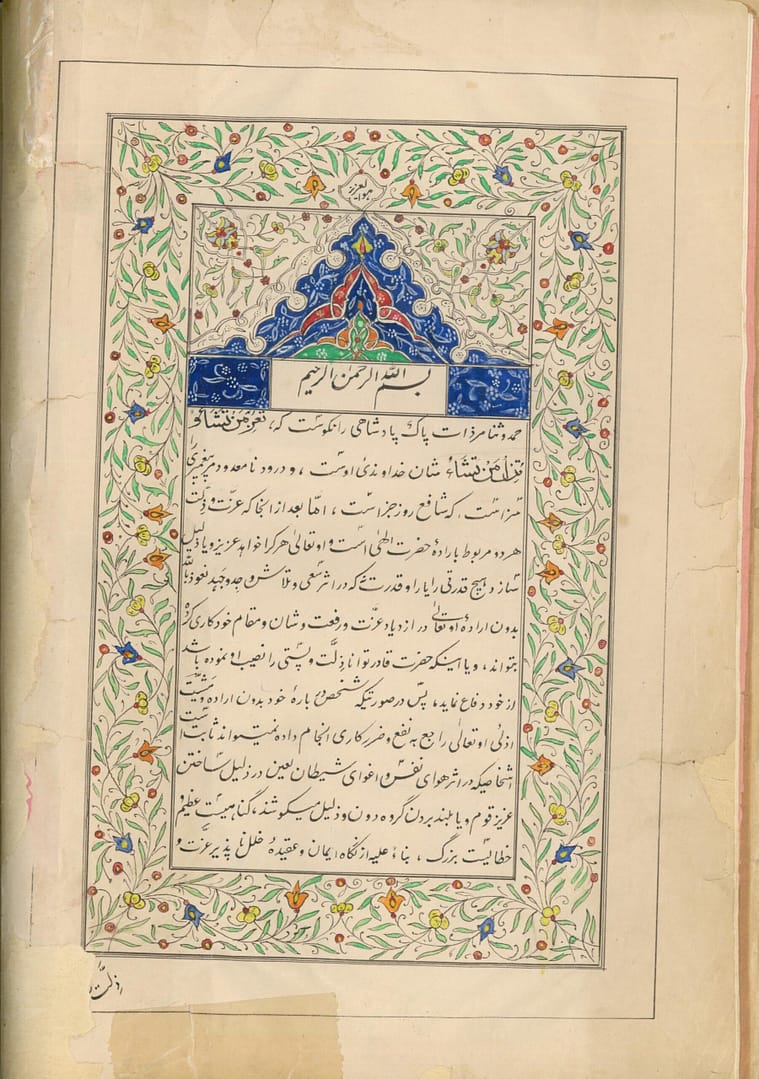 هوالعزیز
بسم الله الرحمن الرحیم
حمد وثنا مر ذات پاک پادشاهی را نکوست که، تعز من تشاء و
تذل من تشاء شان خداوندی اوست ، و درود نامعدود مر پیغمبری را
سزاست که شافع روز جزاست ، امّا بعد از آنجا که عزّت و ذلّت
هر دو مربوط بارادۀ حضرت الهی است و او تعالیٰ هر کرا خواهد عزیز و یا ذلیل
سازد هیچ قدرتی را یارا و قدرت که در اثر سعی و تلاش و جد و جهد نعوذ بالله
بدون ارادۀ او تعالیٰ در ازدیاد عزّت و رفعت و شان و مقام خود کاری کرده
بتواند، و یا اینکه حضرت قادر توانا ذلّت و پستی را نصیب او نموده باشد
از خود دفاع نماید، پس در صورتیکه شخص در بارۀ خود بدون اراده و مشیّت
ازلیٔ او تعالیٰ راجع به نفع و ضرر کاری انجام داده نمیتواند ثابت است
اشخاصیکه در اثر هوای نفس و اغوای شیطان لعین در ذلیل ساختن
عزیز قوم و یا بلند بردن گروه دون و ذلیل میکوشند، گناهیست عظیم و
خطائیست بزرگ ، بناءً علیه از نگاه ایمان و عقیدۀ خلل ناپذیر عزّت و
ذلّت